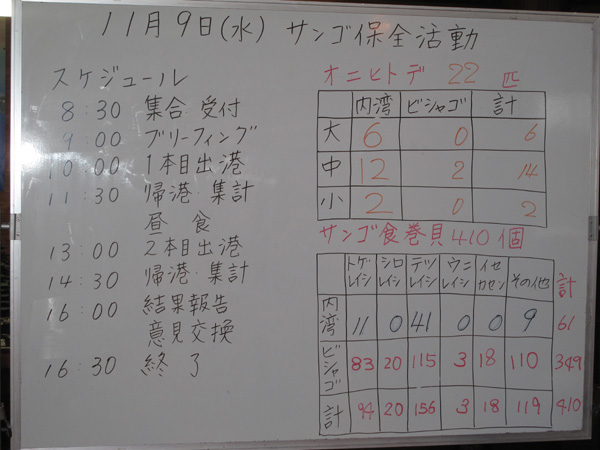 11月9日(水) サンゴ保全活動
スケジュール
8:30 集合 受付
9:00 ブリーフィング
10:00 1本目出港
11:30 帰港・集計
昼 食
13:00 2本目出港
14:30 帰港・集計
16:00 結果報告
意見交換
16:30 終 了
オニヒトデ 22 匹
内湾 ビシャゴ 計
大 6 0 6
中 12 2 14
小 2 0 2
サンゴ食巻貝410個
トゲレイシ シロレイシ テツレイシ ウニレイシ イセカセン その他 計
内湾 11 0 41 0 0 9 61
ビシャゴ 83 20 115 3 18 110 349
計 94 20 156 3 18 119 410